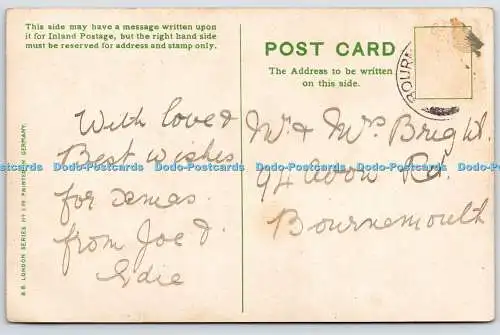 This side may have a message written upon
it for Inland Postage, but the right hand side
must be reserved for address and stamp only.
POST CARD
The Address to be written
on this side.
BOURN
With love &
Best wishes
for xmas.
from Joe &
Edie
Mr & Mrs Bright.
94 Avon Rd.
Bournemouth
LONDON SERIES
PRINTED IN GERMANY.
Dodo-Postcards Dodo-Postcards Dodo-Postcards Dodo-Postcards Dodo-Postcards